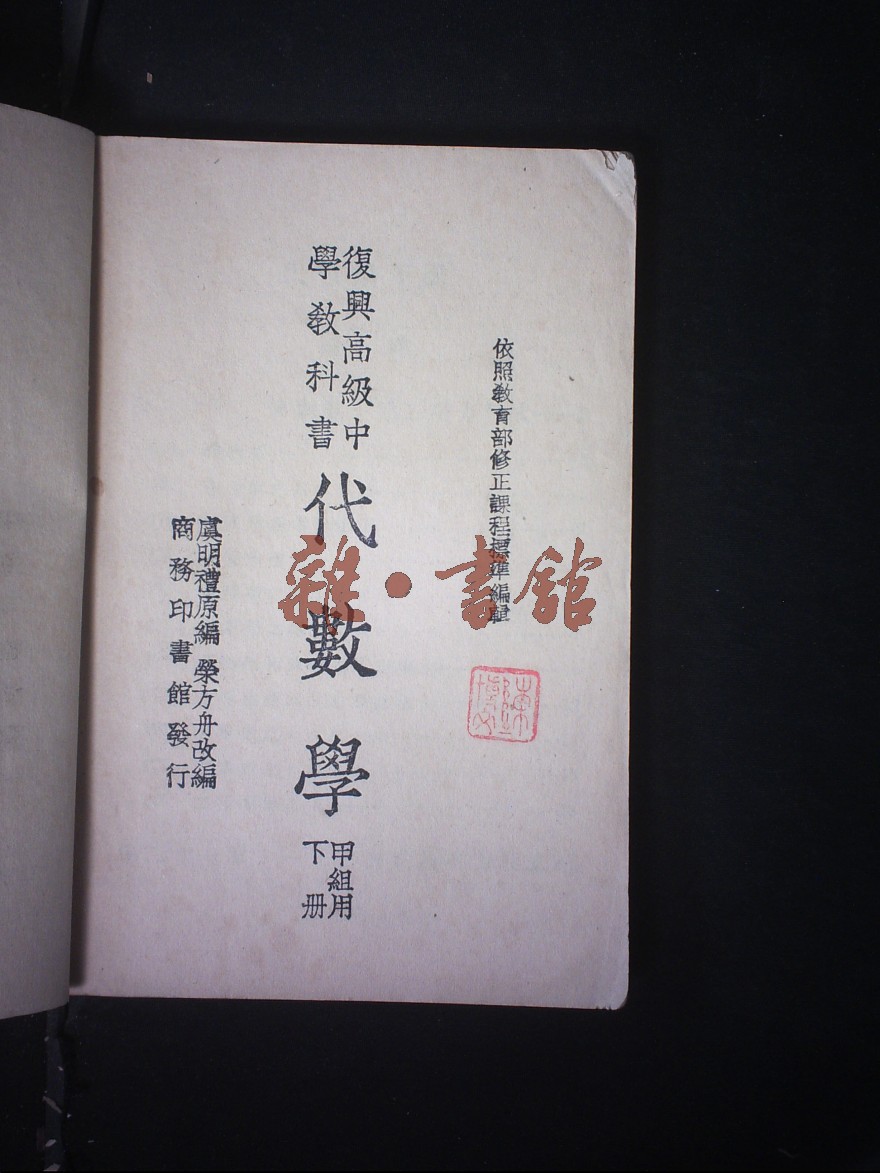 依照教育部修正課程標準編輯
復興高級中
學教科書
代數學
甲組用
下册
虞明禮原編 榮方舟改編
商務印書館發行
雜·書館